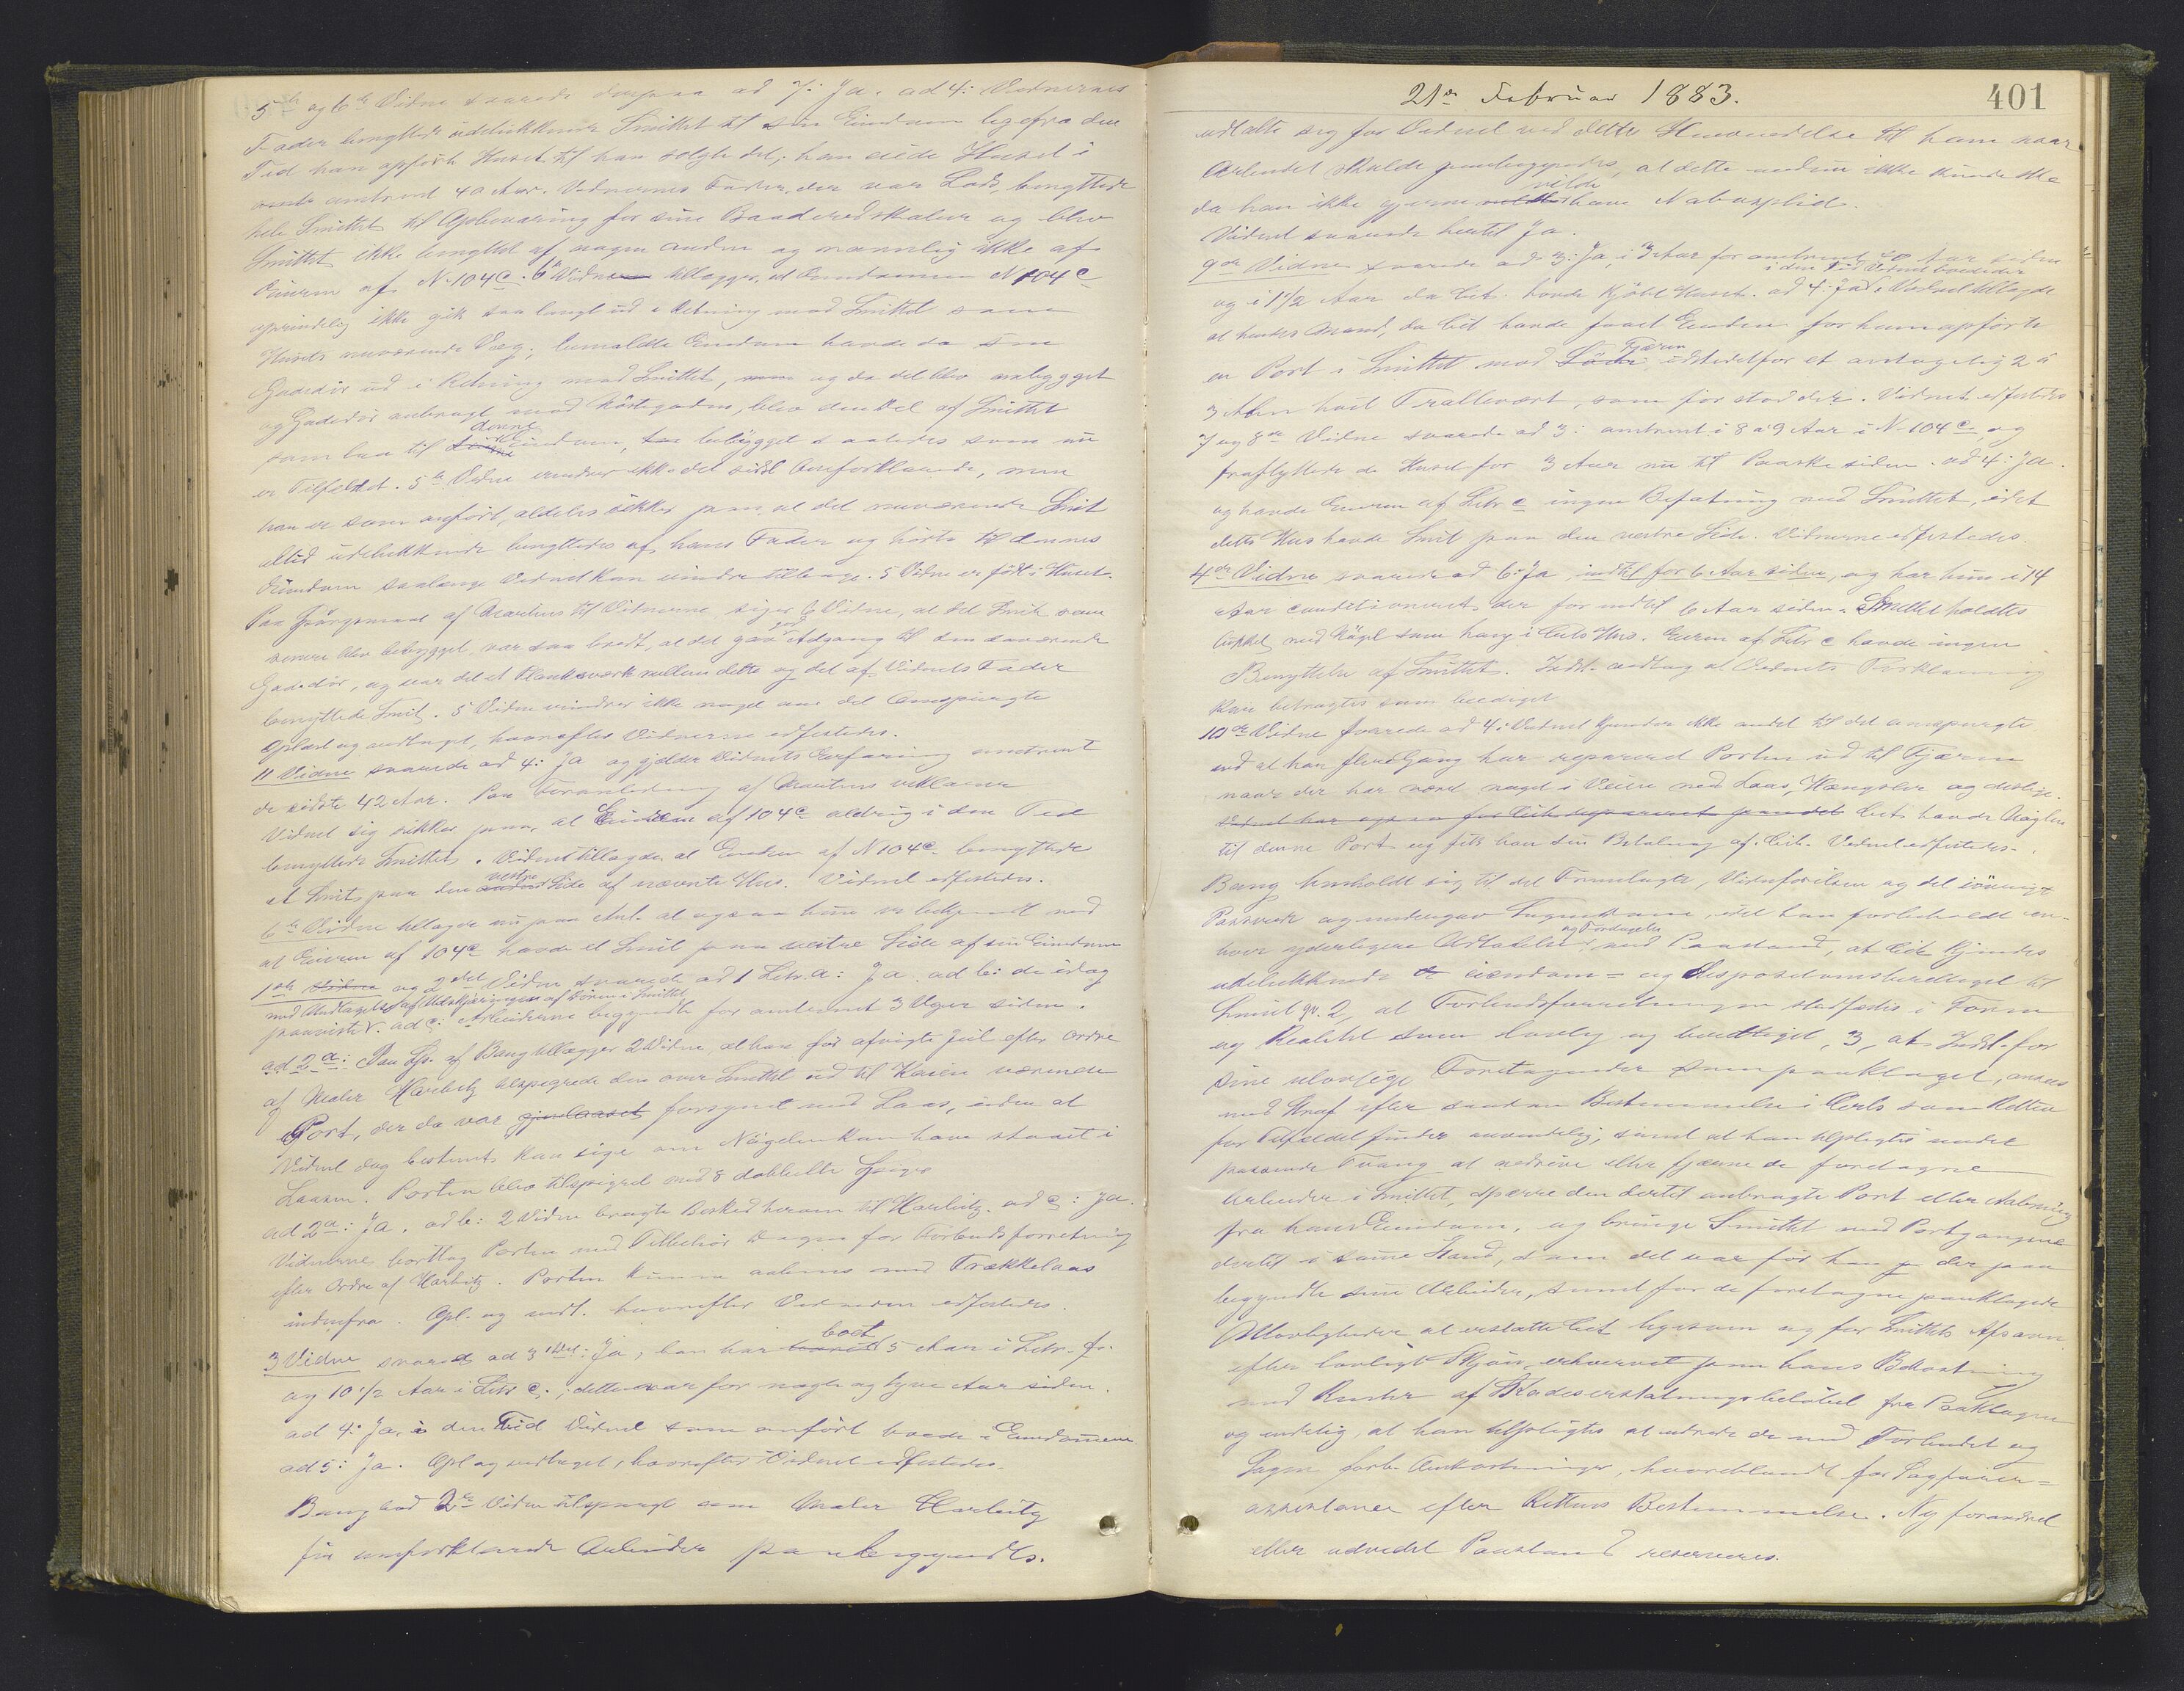 5te og 6te Vidne svarede derpaa ad 7: Ja. ad 4: Vidnernes
Fader benyttede udelukkende Smittet til sin Eiendom ligefra den
Tid han opførte Huset til han solgte det; han eiede Huset i
omtr amtrent 40 Aar. Vidnernes Fader, der var Lods, benyttede
hele Smittet til Opbevaring for sine Baaderedskaber og blev
Smittet ikke benyttet af nogen anden og navnlig ikke af
Eieren af N. 104 c. 6te Vidne tillægger, at Eiendommen N 104 c
oprindelig ikke gik saa langt ud i Retning mod Smittet som
Husets nuværende Væg; bemeldte Eiendom havde da sin
Gadedør ud i Retning mod Smittet, og da det blev ombygget
og Gadedør anbragt mod Kirkegaden, blev den Del af Smittet
som laa til denne Eiendom, bebygget saaledes som nu
er Tilfældet. 5te Vidne erindrer ikke det sidst Omforklarede, men
han er som anført, aldeles sikker paa, at det nuværende Smit
altid udelukkende benyttedes af hans Fader og hørte til dennes
Eiendom saalænge Vidnet kan erindre tilbage. 5 Vidne er født i Huset.
Paa Spørgsmaal af Martens til Vidnerne siger 6 Vidne, at det Smit som
senere blev bebygget, var saa bredt, at det gav god Adgang til den daværende
Gadedør, og var det et Plankeværk mellem dette og det af Vidnets Fader
benyttede Smit. 5 Vidne erindrer ikke noget om det Omspurgte
Oplæst og vedtaget, hvorefter Vidnerne edfæstedes.
11 Vidne svarede ad 4: Ja og gjælder Vidnets Erfaring omtrent
de sidste 42 Aar. Paa Foranledning af Martens erklærer
Vidnet sig sikker paa, at Eieren af 104 c aldrig i den Tid
benyttede Smittet. Vidnet tillagde, at Eieren af N 104 c benyttede
et Smit paa den vestre Side af nævnte Hus. Vidnet edfæstedes.
6te Vidne tillagde nu paa Anl. at ogsaa hun er bekjendt med
at Eieren af 104 c havde et Smit paa vestre Side af sin Eiendom
1ste Vidne og 2det Vidne svarede ad 1 Litr. a: Ja ad b: de idag
med Undtagelse af Udskjæringen af Døren i Smittet
paaviste. ad c: Arbeiderne begyndte for omtrent 3 Uger siden.
ad 2 a: Paa Sp. af Bang tillægger 2 Vidne, at han før afvigte Jul efter Ordre
af Maler Harbitz tilspigrede den over Smittet ud til Kaien værende
Port, der da var forsynet med Laas, uden at
Vidnet dog bestemt kan sige om Nøgelen kan have staaet i
Laasen. Porten blev tilspigret med 8 dobbelte Spiger
ad 2 a: Ja. ad b: 2 Vidne bragte Besked herom til Harbitz. ad c: Ja.
Vidnerne borttog Porten med Tilbehør Dagen før Forbudsforretning
efter Ordre af Harbitz. Porten kunne aabnes med Trækkelaas
indenfra. Opl. og vedt. hvorefter Vidnerne edfæstedes.
3 Vidne svarede ad 3: Ja, han har boet 5 Aar i Litr. f.
og 10 1/2 Aar i Litr c.; dette var for nogle og tyve Aar siden.
ad 4: Ja, i den Tid Vidnet som anført boede i Eiendommene.
ad 5: Ja. Opl og vedtaget, hvorefter Vidnet edfæstedes.
Bang bad 2det Vidne tilspurgt om Maler Harbitz
før omforklarede Arbeider paabegyndtes.
21de Februar 1883.
401
udtalte sig for Vidnet ved dettes Henvendelse til ham naar
Arbeidet skulde paabegyndes, at dette endnu ikke kunde ske
da han ikke gjerne vilde have Nabosplid.
Vidnet svarede hertil Ja.
9de Vidne svarede ad 3: Ja, i 3 Aar for omtrent 20 Aar siden
i den Tid Vidnet boede der
og i 1 1/2 Aar da Cit. havde kjøbt Huset. ad 4: Ja. Vidnet tillagde
at hendes Mand, da Cit havde faaet Eiendom for ham opførte
en Port i Smittet mod Fjæren istedetfor et antagelig 2 a
3 Alen høit Trallevært, som før stod der. Vidnet edfæstedes
7 og 8de Vidne svarede ad 3: omtrent i 8 a 9 Aar i N. 104 c og
fraflyttede de Huset for 3 Aar nu til Paaske siden. ad 4: Ja.
og havde Eieren af Litr c ingen Befatning med Smittet, idet
dette Hus havde Smit paa den vestre Side. Vidnerne edfæstedes.
4de Vidne svarede ad 6: Ja indtil for 6 Aar siden, og har hun i 14
Aar conditioneret der for indtil 6 Aar siden. Smittet holdtes
lukket med Nøgel som hang i Cits Hus. Eieren af Litr c havde ingen
Benyttelse af Smittet. Indst. vedtog at Vidnets Forklaring
kan betragtes som beediget
10de Vidne svarede ad 4: Vidnet kjender ikke andet til det omspurgte
end at han flere Gang har repareret Porten ud til Fjæren
naar der har været noget i Veien med Laas, Hængsler og deslige.
Vidnet har ogsaa for Cit. repareret paa det Cit. havde Nøglen
til denne Port og fik han sin Betaling af Cit. Vidnet edfæstedes.
Bang henholdt sig til det Fremlagte, Vidneførelsen og det iøvrigt
Passerede og indlod Sagen til Dom, idet han forbeholdt en-
hver yderligere Udtalelse og Fordragelse med Paastand, at Cit. kjendes
udelukkende eiendoms- og dispositionsberettiget til
Smittet gv. 2, at Forbudsforretningen stadfæstes i Form
og Realitet som lovlig og berettiget, 3, at Indst. for
sine ulovlige Foretagender som paaklaget, ansees
med Straf efter saadan Bestemmelse i Crls som Retten
for Tilfældet finder anvendelig, samt at han tilpligtes under
passende Tvang at nedrive eller fjerne de foretagne
Arbeider i Smittet, spærre den dertil anbragte Port eller Aabning
fra hans Eiendom, og bringe Smittet med Portgangene
dertil i samme Stand, som det var før han der paa
begyndte sine Arbeider, samt for de foretagne paaklagede
Ulovligheder at erstatte Cit. ligesom og for Smittets Afsavn
efter lovligt Skjøn, erhvervet paa hans Bekostning
med Renter af Skadeserstatningsbeløbet fra Paaklagen
og endelig, at han tilpligtes at udrede de med Forbudet og
Sagen forb. Omkostninger, hvoriblandt for Sagfører-
assistance efter Rettens Bestemmelse. Ny forandret
eller udvidet Paastand reserveres.